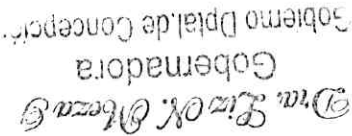 Dra. Liz N. Meza G
Gobernadora
Gobierno Dptal. de Concepción